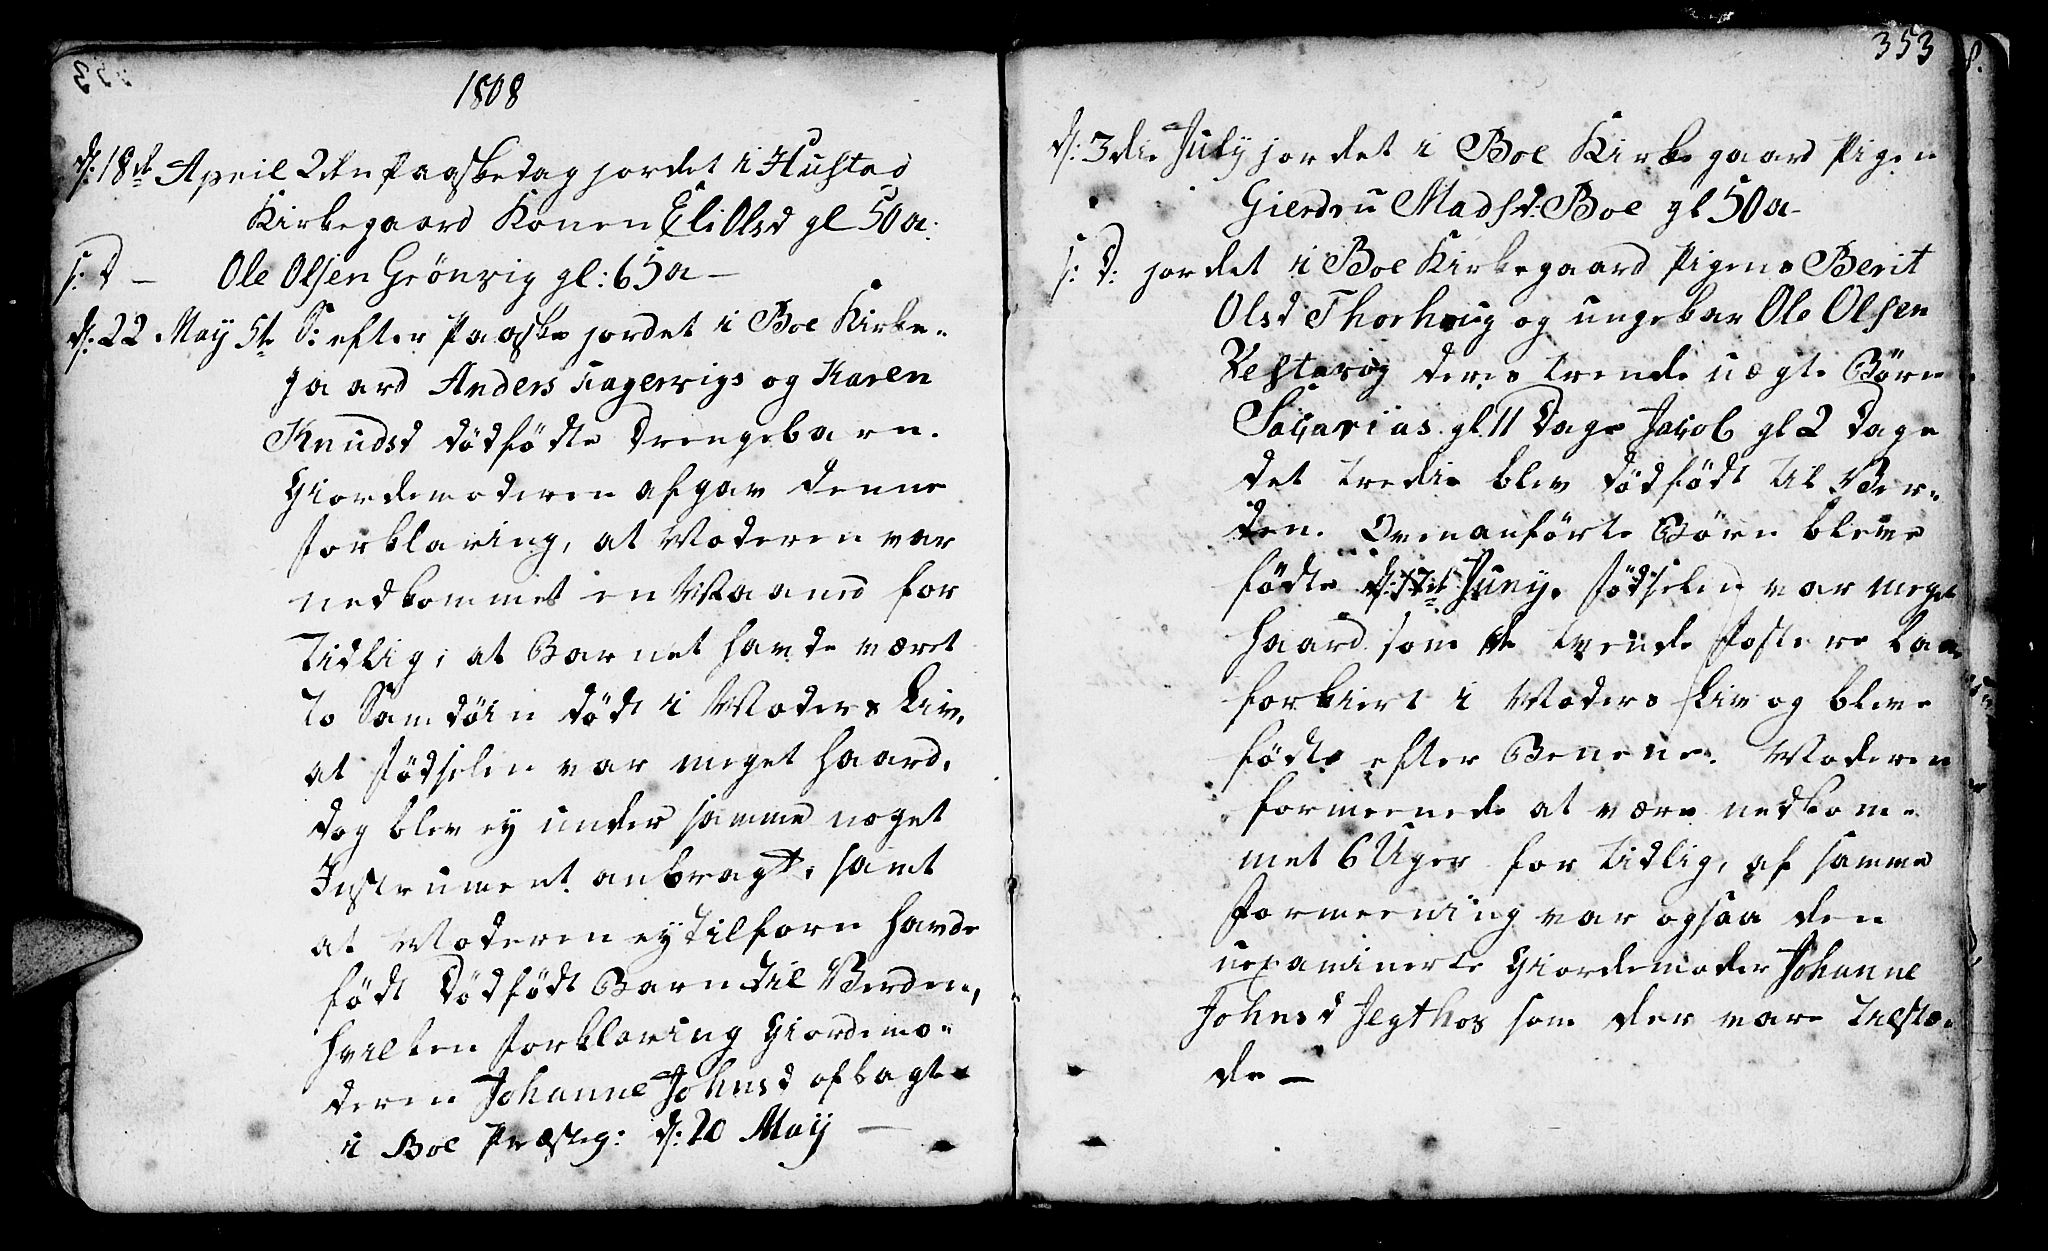 1808
d: 18de April 2den Paaskedag jordet i Hustad
Kirkegaard Konen Eli Olsd gl 50 a:
s: D – Ole Olsen Grönvig gl: 65 a –
d: 22 May 5te S: efter Paaske jordet i Boe Kirke-
gaard Anders Fagervigs og Karen
Knudsd dödfödte Drengebarn.
Giordemoderen afgav denne
forklaring, at Moderen var
nedkommet en Maaned for
tidlig; at Barnet havde været
to Samdöin dödt i Moders Liv,
at födselen var meget haard,
dog blev ey under samme noget
Instrument anbragt, samt
at Moderen ey tilforn havde
födt Dödfödt Barn til Verden,
hvilken forklaring Giordemo-
deren Johanne Johnsd aflagte
i Boe Præsteg: d: 20 May –
353
d: 3die July jordet i Boe Kirkegaard Pigen
Gierdru Madsd: Boe gl 50 a –
s: D: jordet i Boe Kirkegaard Pigens Berit
Olsd Thorhoug og ungekar Ole Olsen
Vestavig deres trende uægte Börn
Sacarias gl. 11 Dage Jacob gl 2 Dage
det tredie blev dödfödt til Ver-
den. Ovenanförte Börn bleve
födte d: Juny. födselen var meget
haard som de tvende fostere laae
forkiert i Moders Liv og bleve
födte efter Benene. Moderen
formeenede at være nedkom-
met 6 Uger for tidlig, af samme
formeening var ogsaa den
uexaminerte Giordemoder Johanne
Johnsd Jegthos som der var tilstæ-
de –